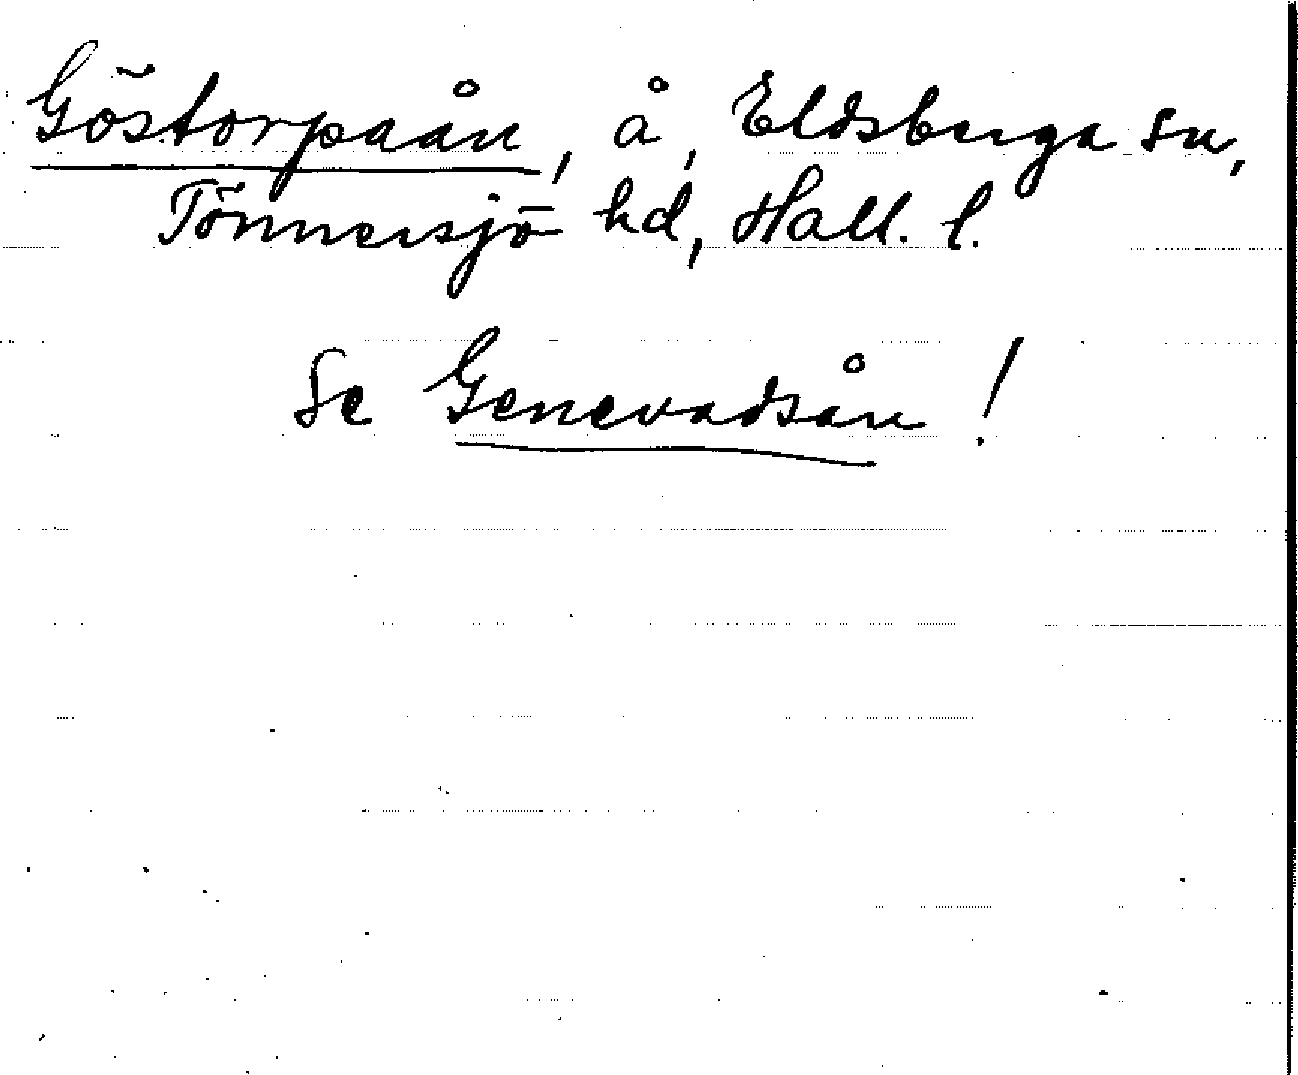 Göstorpaån, å, Eldsberga sn,
Tönnersjö hd, Hall. l.
Se Genevadsån!